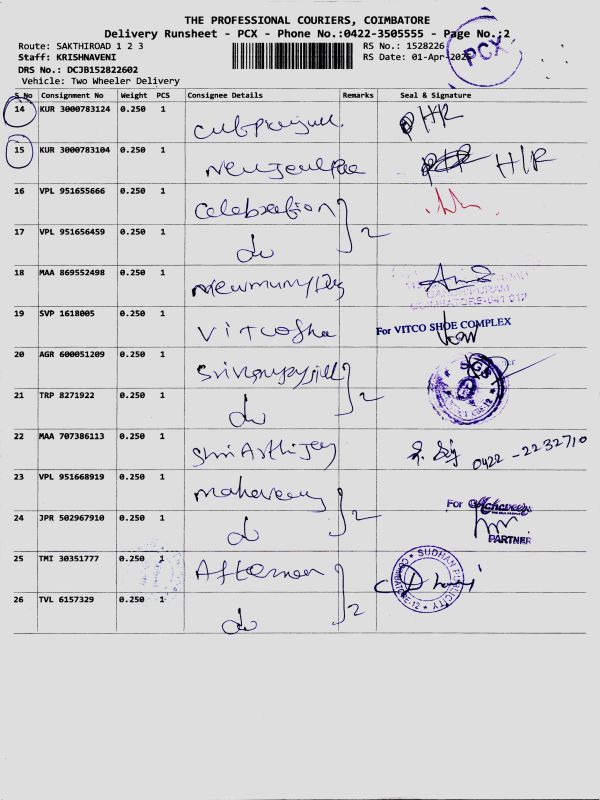 THE PROFESSIONAL COURIERS, COIMBATORE
Delivery Runsheet - PCX - Phone No.:0422-3505555 - Page No.:2
Route: SAKTHIROAD 1 2 3
RS No.: 1528226
Staff: KRISHNAVENI
RS Date: 01-Apr-202
PCX
DRS No.: DCJB152822602
Vehicle: Two Wheeler Delivery
S No Consignment No Weight PCS Consignee Details Remarks Seal & Signature
14 KUR 3000783124 0.250 1
15 KUR 3000783104 0.250 1 H/R
16 VPL 951655666 0.250 1 Celebration 2
17 VPL 951656459 0.250 1 do
18 MAA 869552498 0.250 1
COIMBATORE-641 012
19 SVP 1618005 0.250 1 For VITCO SHOE COMPLEX
20 AGR 600051209 0.250 1 2 SGS
21 TRP 8271922 0.250 1 do
22 MAA 707386113 0.250 1 0422 - 2232710
23 VPL 951668919 0.250 1 2 For
24 JPR 502967910 0.250 1 do PARTNER
25 TMI 30351777 0.250 1 2 SUDHAN PUBLICITY
26 TVL 6157329 0.250 1 do